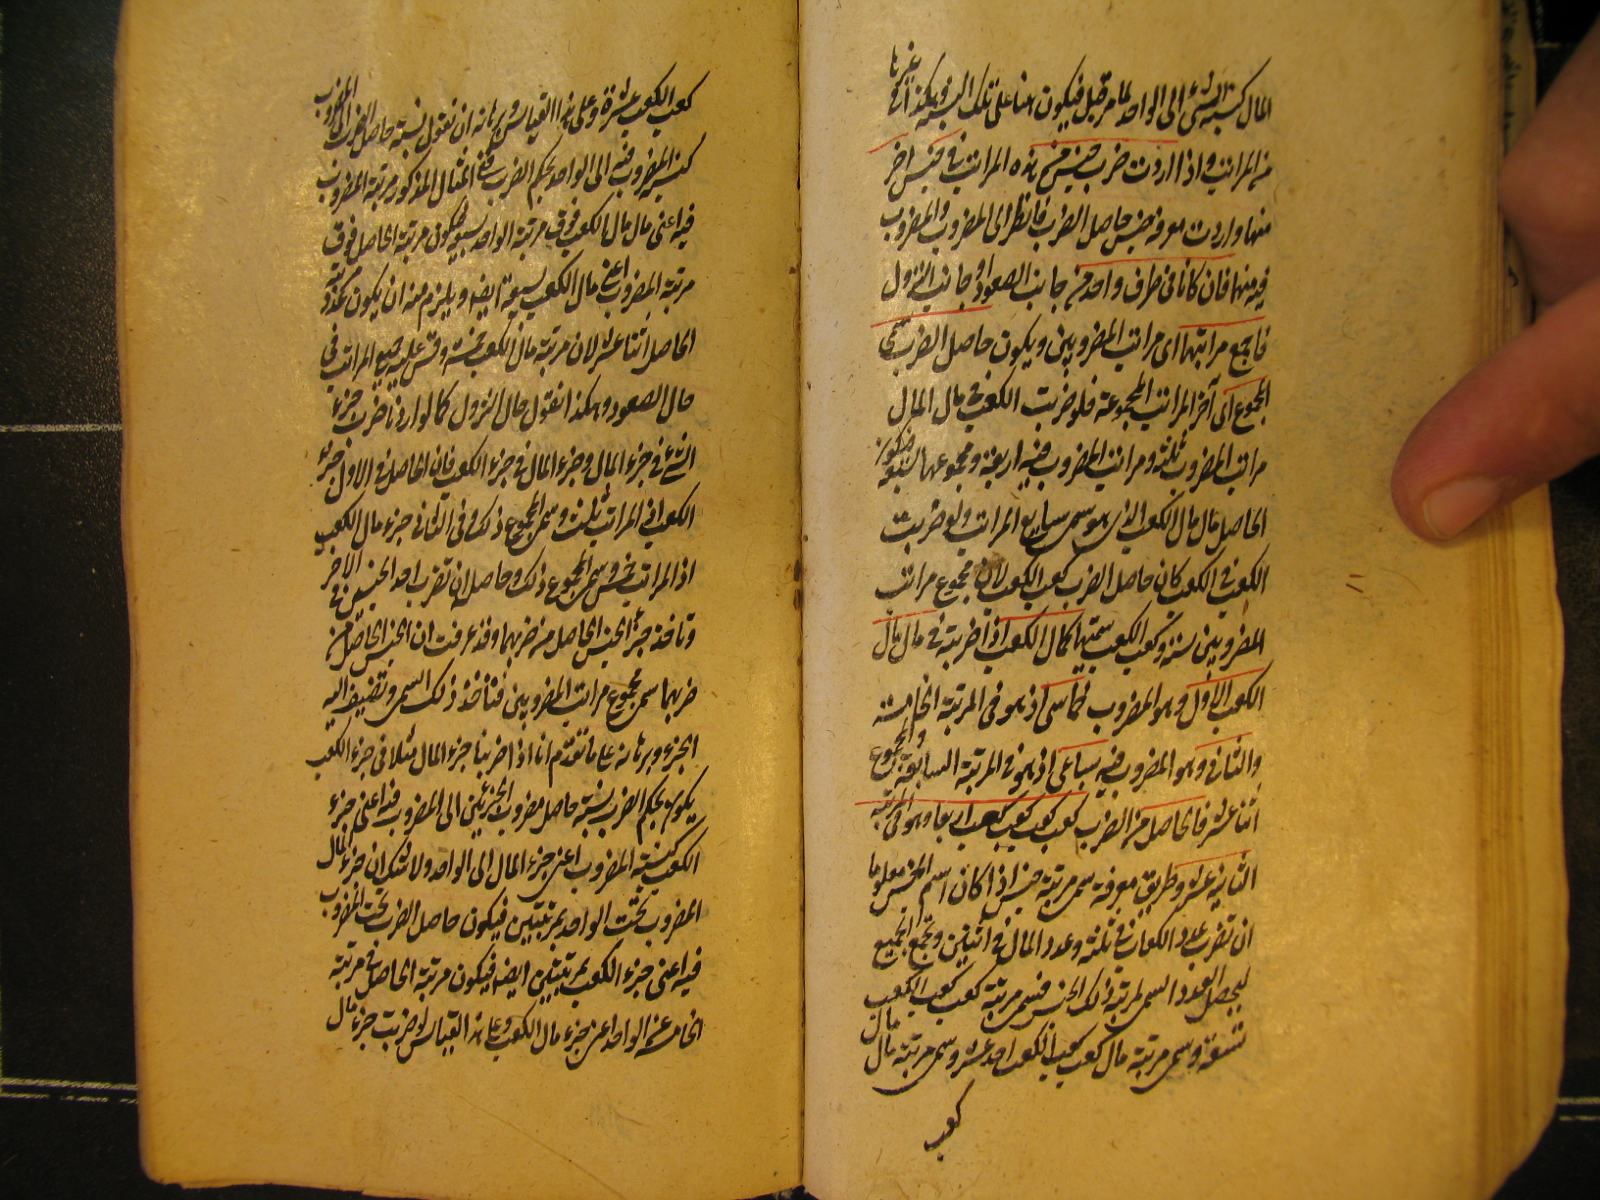 المال كنسبة الشئ الى الواحد لما مر قبل فيكون هنا على تلك النسبة وهكذا فى غيرها
من المراتب واذا اردت ضرب جنس من هذه المراتب فى جنس اخر
منها واردت معرفة جنس حاصل الضرب فانظر الى المضروب والمضروب
فيه منها فان كانا فى طرف واحد من جانب الصعود او جانب النزول
فاجمع مراتبهما اى مراتب المضروبين ويكون حاصل الضرب سمى
المجموع اى آخر المراتب المجموعة فلو ضربت الكعب فى مال المال
مراتب المضروب ثلثة ومراتب المضروب فيه اربعة ومجموعهما سبعة فيكون
الحاصل مال مال الكعب الذى هو سمى سابع المراتب ولو ضربت
الكعب فى الكعب كان حاصل الضرب كعب الكعب لان مجموع مراتب
المضروبين ستة وكعب الكعب سميها كمال الكعب اذا ضربته فى مال مال
الكعب الاول وهو المضروب خماسى اذ هو فى المرتبة الخامسة
والثانى وهو المضروب فيه سباعى اذ هو فى المرتبة السابعة والمجموع
اثنا عشر فالحاصل من الضرب كعب كعب كعب كعب اربعا وهو فى المرتبة
الثانية عشر وطريق معرفة سمى مرتبة جنس اذا كان اسم الجنس معلوما
ان تضرب عدد الكعاب فى ثلثة وعدد المال فى اثنين وتجمع الجميع
ليحصل العدد السمى لمرتبة ذلك الجنس فسمى مرتبة كعب كعب الكعب
تسعة وسمى مرتبة مال كعب كعب الكعب احد عشر وسمى مرتبة مال مال
كعب
كعب الكعب عشرة وعلى هذا القياس وبرهانه ان نقول نسبة حاصل الضرب الى المضروب
كنسبة المضروب فيه الى الواحد بحكم الضرب ففى المثال المذكور مرتبة المضروب
فيه اعنى مال مال الكعب فوق مرتبة الواحد بسبع فيكون مرتبة الحاصل فوق
مرتبة المضروب اعنى مال الكعب بسبعة ايضا ويلزم منه ان يكون عدد مرتبة
الحاصل اثنا عشر لان مرتبة مال الكعب خمسة وقس عليه جميع المراتب فى
حال الصعود وهكذا نقول حال النزول كما لو اردنا ضرب جزء
الشئ فى جزء المال وجزء المال فى جزء الكعب فان الحاصل فى الاول جزء
الكعب اذ المراتب ثلث وسمى المجموع ذلك وفى الثانى جزء مال الكعب
اذ المراتب خمس وسمى المجموع ذلك وحاصله ان تضرب احد الجنسين فى الاخر
وتاخذ جزء الجنس الحاصل من ضربهما وقد عرفت ان الجنس الحاصل من
ضربهما سمى مجموع مراتب المضروبين فتاخذ ذلك السمى وتضيف اليه
الجزء وبرهانه على ما تقدم انا اذا ضربنا جزء المال مثلا فى جزء الكعب
يكون بحكم الضرب نسبة حاصل مضروب الجزئين الى المضروب فيه اعنى جزء
الكعب كنسبة المضروب اعنى جزء المال الى الواحد ولا شك ان جزء المال
المضروب تحت الواحد بمرتبتين فيكون حاصل الضرب تحت المضروب
فيه اعنى جزء الكعب بمرتبتين ايضا فيكون مرتبة الحاصل فى مرتبة
الخامسة من الواحد اعنى جزء مال الكعب وعلى هذا القياس لو ضربت جزء مال